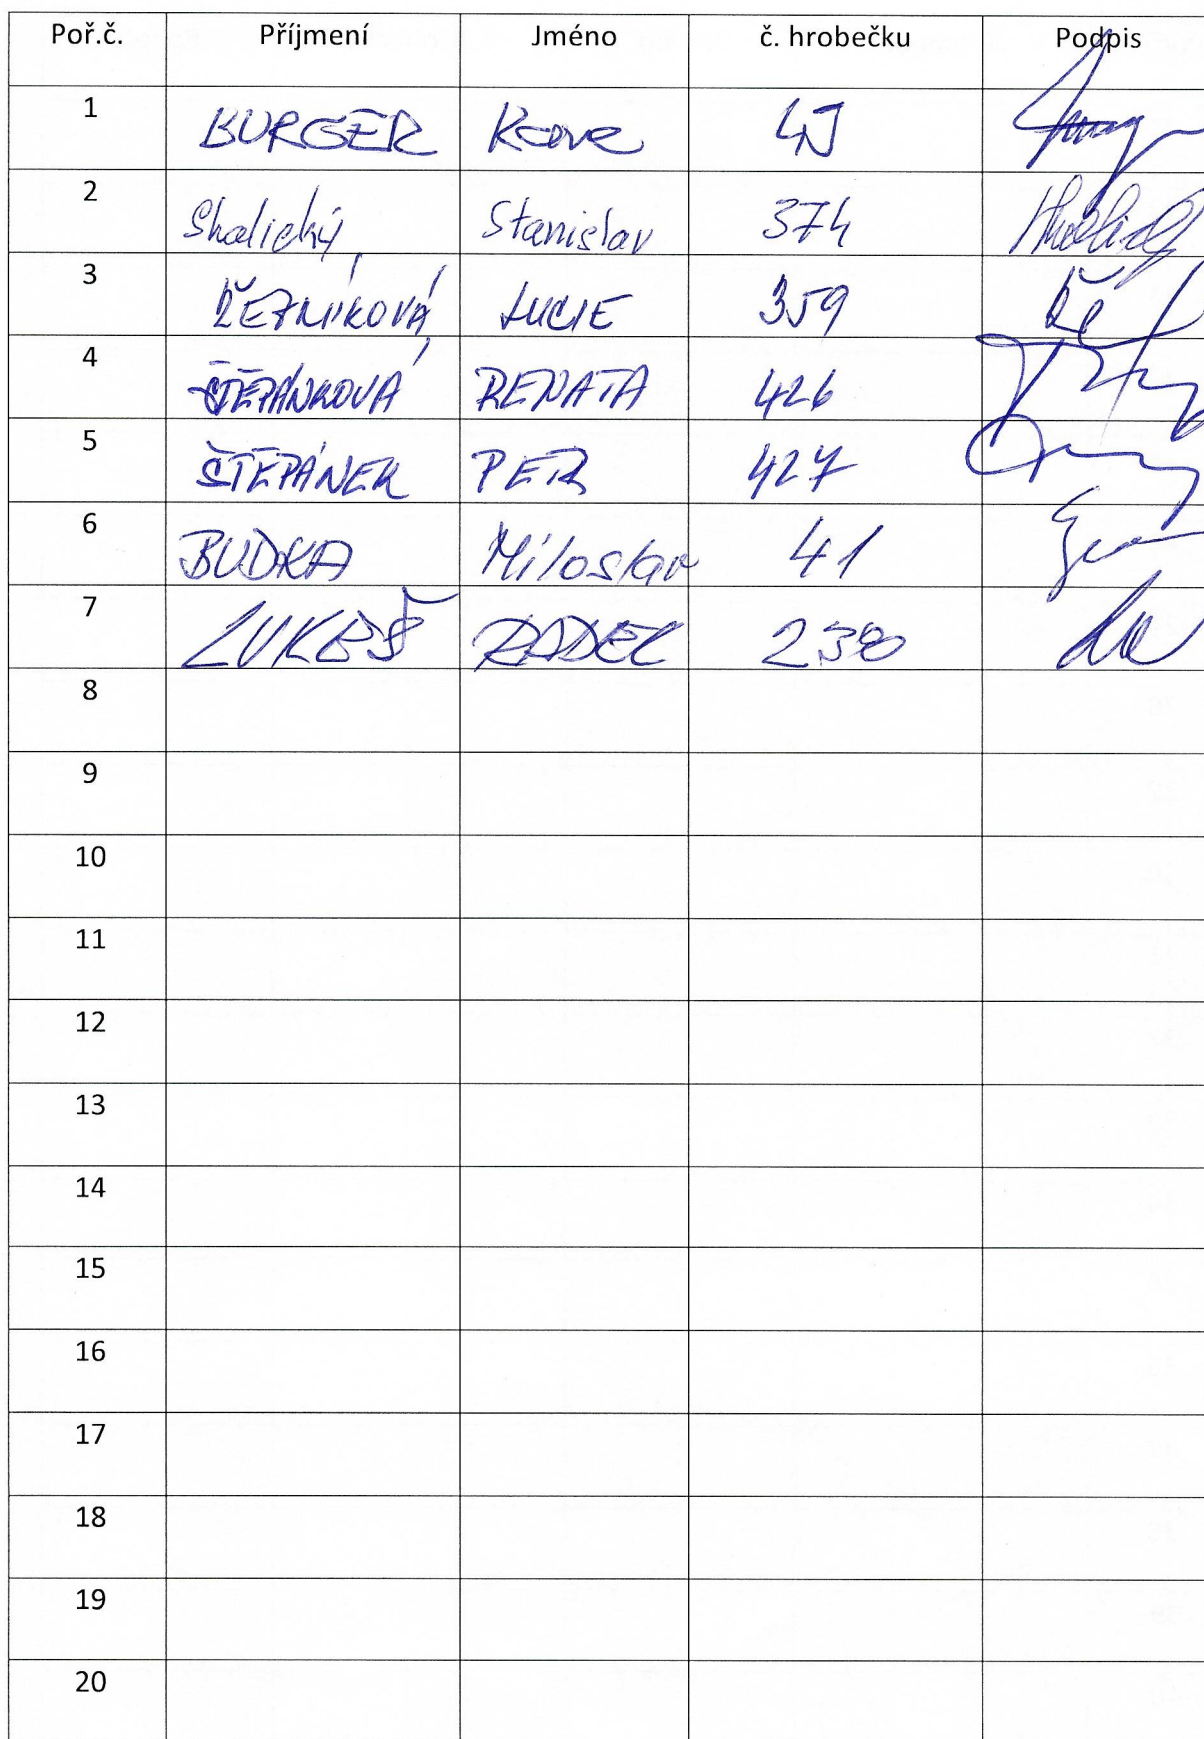 Poř.č. Příjmení Jméno č. hrobečku Podpis
1 BURGER
2 Skalický Stanislav 374
3 ŘEZNÍKOVÁ LUCIE 359
4 ŠTĚPÁNKOVÁ RENATA 426
5 ŠTĚPÁNEK PETR 427
6 BUDKA Miloslav 41
7 LUKEŠ RADEK
8
9
10
11
12
13
14
15
16
17
18
19
20